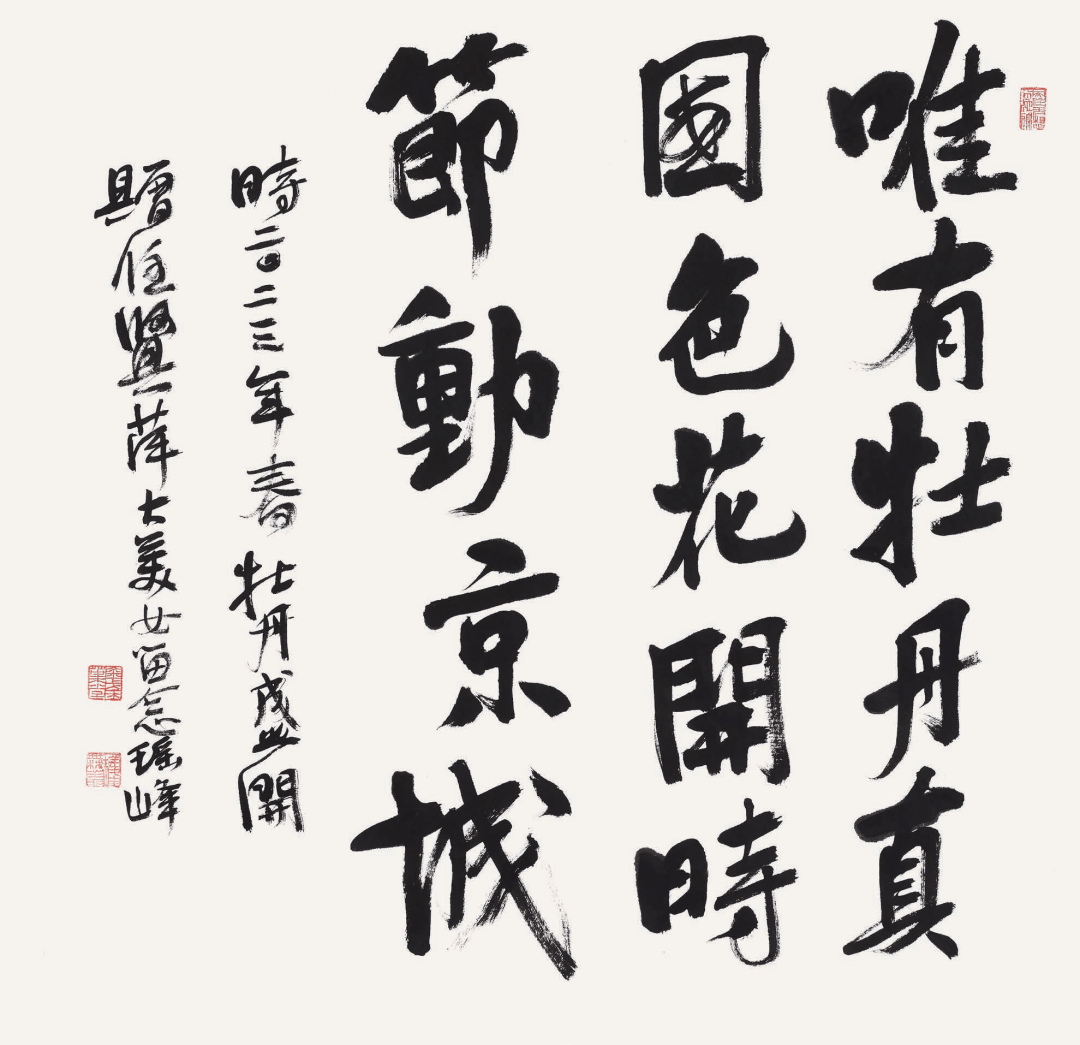 唯有牡丹真
國色花開時
節動京城
時二〇二三年春牡丹盛開
贈任賢萍大美女留念瑶峰